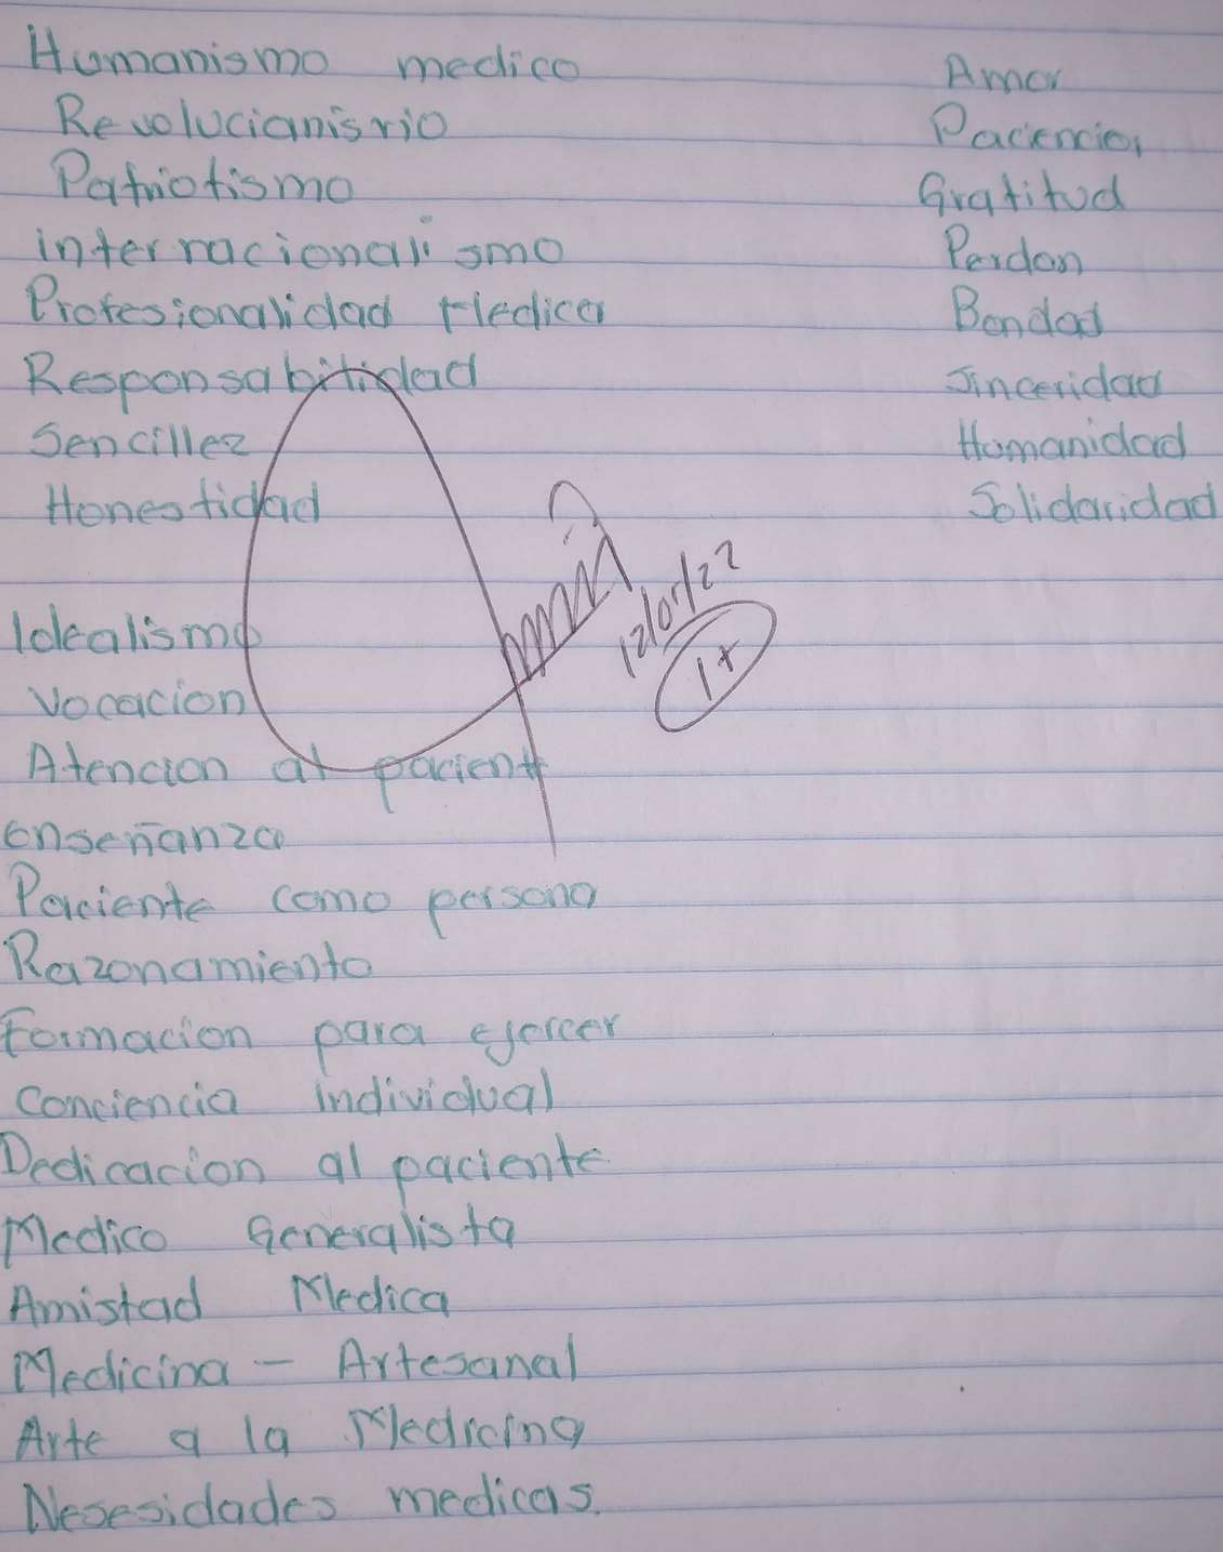 Humanismo medico
Revolucianisrio
Patriotismo
internacionalismo
Profesionalidad Medica
Responsabilidad
Sencillez
Honestidad
Idealismo
Vocacion
Atencion al pacient
enseñanza
Paciente como persona
Razonamiento
Formacion para ejercer
Conciencia individual
Dedicacion al paciente
Medico Generalista
Amistad Medica
Medicina - Artesanal
Arte a la Medicina
Nesesidades medicas.
Amor
Paciencia
Gratitud
Perdon
Bondad
Sinceridad
Humanidad
Solidaridad
1+